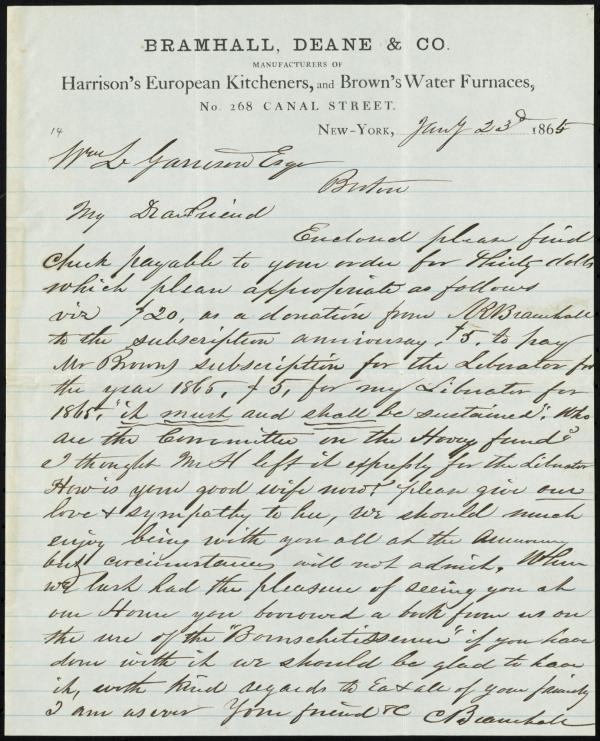 BRAMHALL, DEANE & CO.
MANUFACTURERS OF
Harrison's European Kitcheners, and Brown's Water Furnaces,
No. 268 CANAL STREET.
14
NEW-YORK, Jany 23d 1865
Wm L Garrison Esqr
Boston
My Dear Friend
Enclosed please find
check payable to your order for Thirty dolls
which please appropriate as follows
viz $20. as a donation from Bramhall
to the subscription anniversay. $5. to pay
Mr Browns subscription for the Liberator for
the year 1865, $5, for my Liberator for
1865. "it must and shall be sustained". Who
are the Committee on the Hovey fund?
I thought Mr H left it expressly for the Liberator
How is your good wife now? please give our
love & sympathy to her, We should much
enjoy being with you all at the
but circumstances will not admit. When
we last had the pleasure of seeing you at
our Home you borrowed a book from us on
the use of the " " if you have
done with it we should be glad to have
it, with kind regards to Ea & all of your family
I am as ever Your friend &c C Bramhall